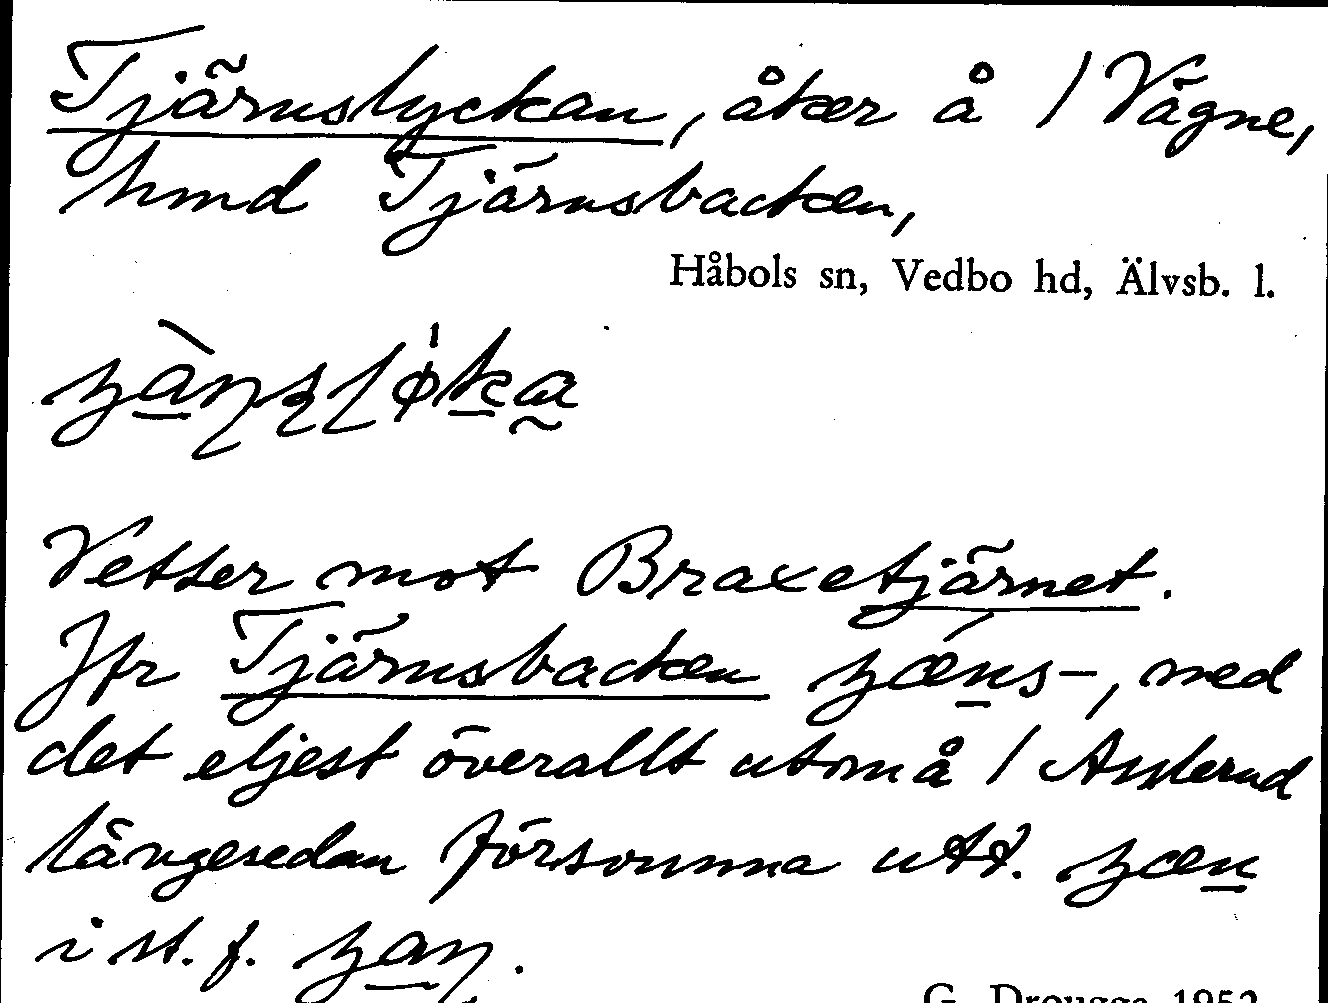 Tjärnslyckan, åker å 1 Vägne,
hmd Tjärnsbacken,
Håbols sn, Vedbo hd, Älvsb. l.
Vetter mot Braxetjärnet.
Jfr Tjärnsbacken med
det eljest överallt utom å 1 Asslerud
längesedan försvunna utt.
i st. f.
G. Drougge 1952